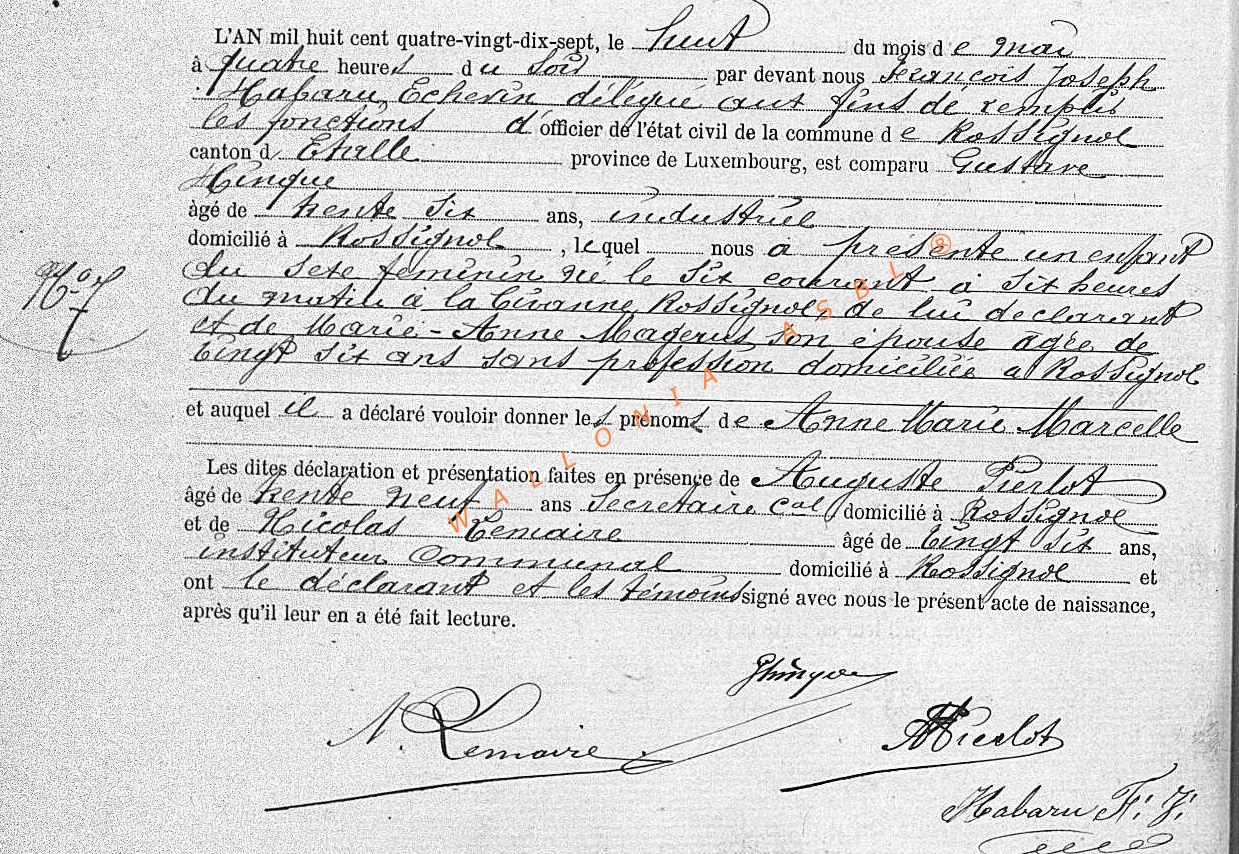 L'AN mil huit cent quatre-vingt-dix-sept, le huit du mois de mai
à quatre heures du soir par devant nous François Joseph
Habaru, Echevin délégué aux fins de remplir
les fonctions d'officier de l'état civil de la commune de Rossignol
canton d'Etalle province de Luxembourg, est comparu Gustave
Hinque
âgé de trente six ans, industriel
domicilié à Rossignol, lequel nous a présenté un enfant
du sexe féminin né le six courant à six heures
du matin à la Civanne, Rossignol, de lui déclarant
et de Marie-Anne Magerus son épouse âgée de
vingt six ans sans profession domiciliée à Rossignol
N° 7
et auquel il a déclaré vouloir donner les prénoms de Anne Marie Marcelle
Les dites déclaration et présentation faites en présence de Auguste Pierlot
âgé de trente neuf ans Secretaire cal domicilié à Rossignol
et de Nicolas Lemaire âgé de vingt six ans,
instituteur communal domicilié à Rossignol et
ont le déclarant et les témoins signé avec nous le présent acte de naissance,
après qu'il leur en a été fait lecture.
GHinque
N. Lemaire
APierlot
Habaru F. J.
WALLONIA ASBL ®